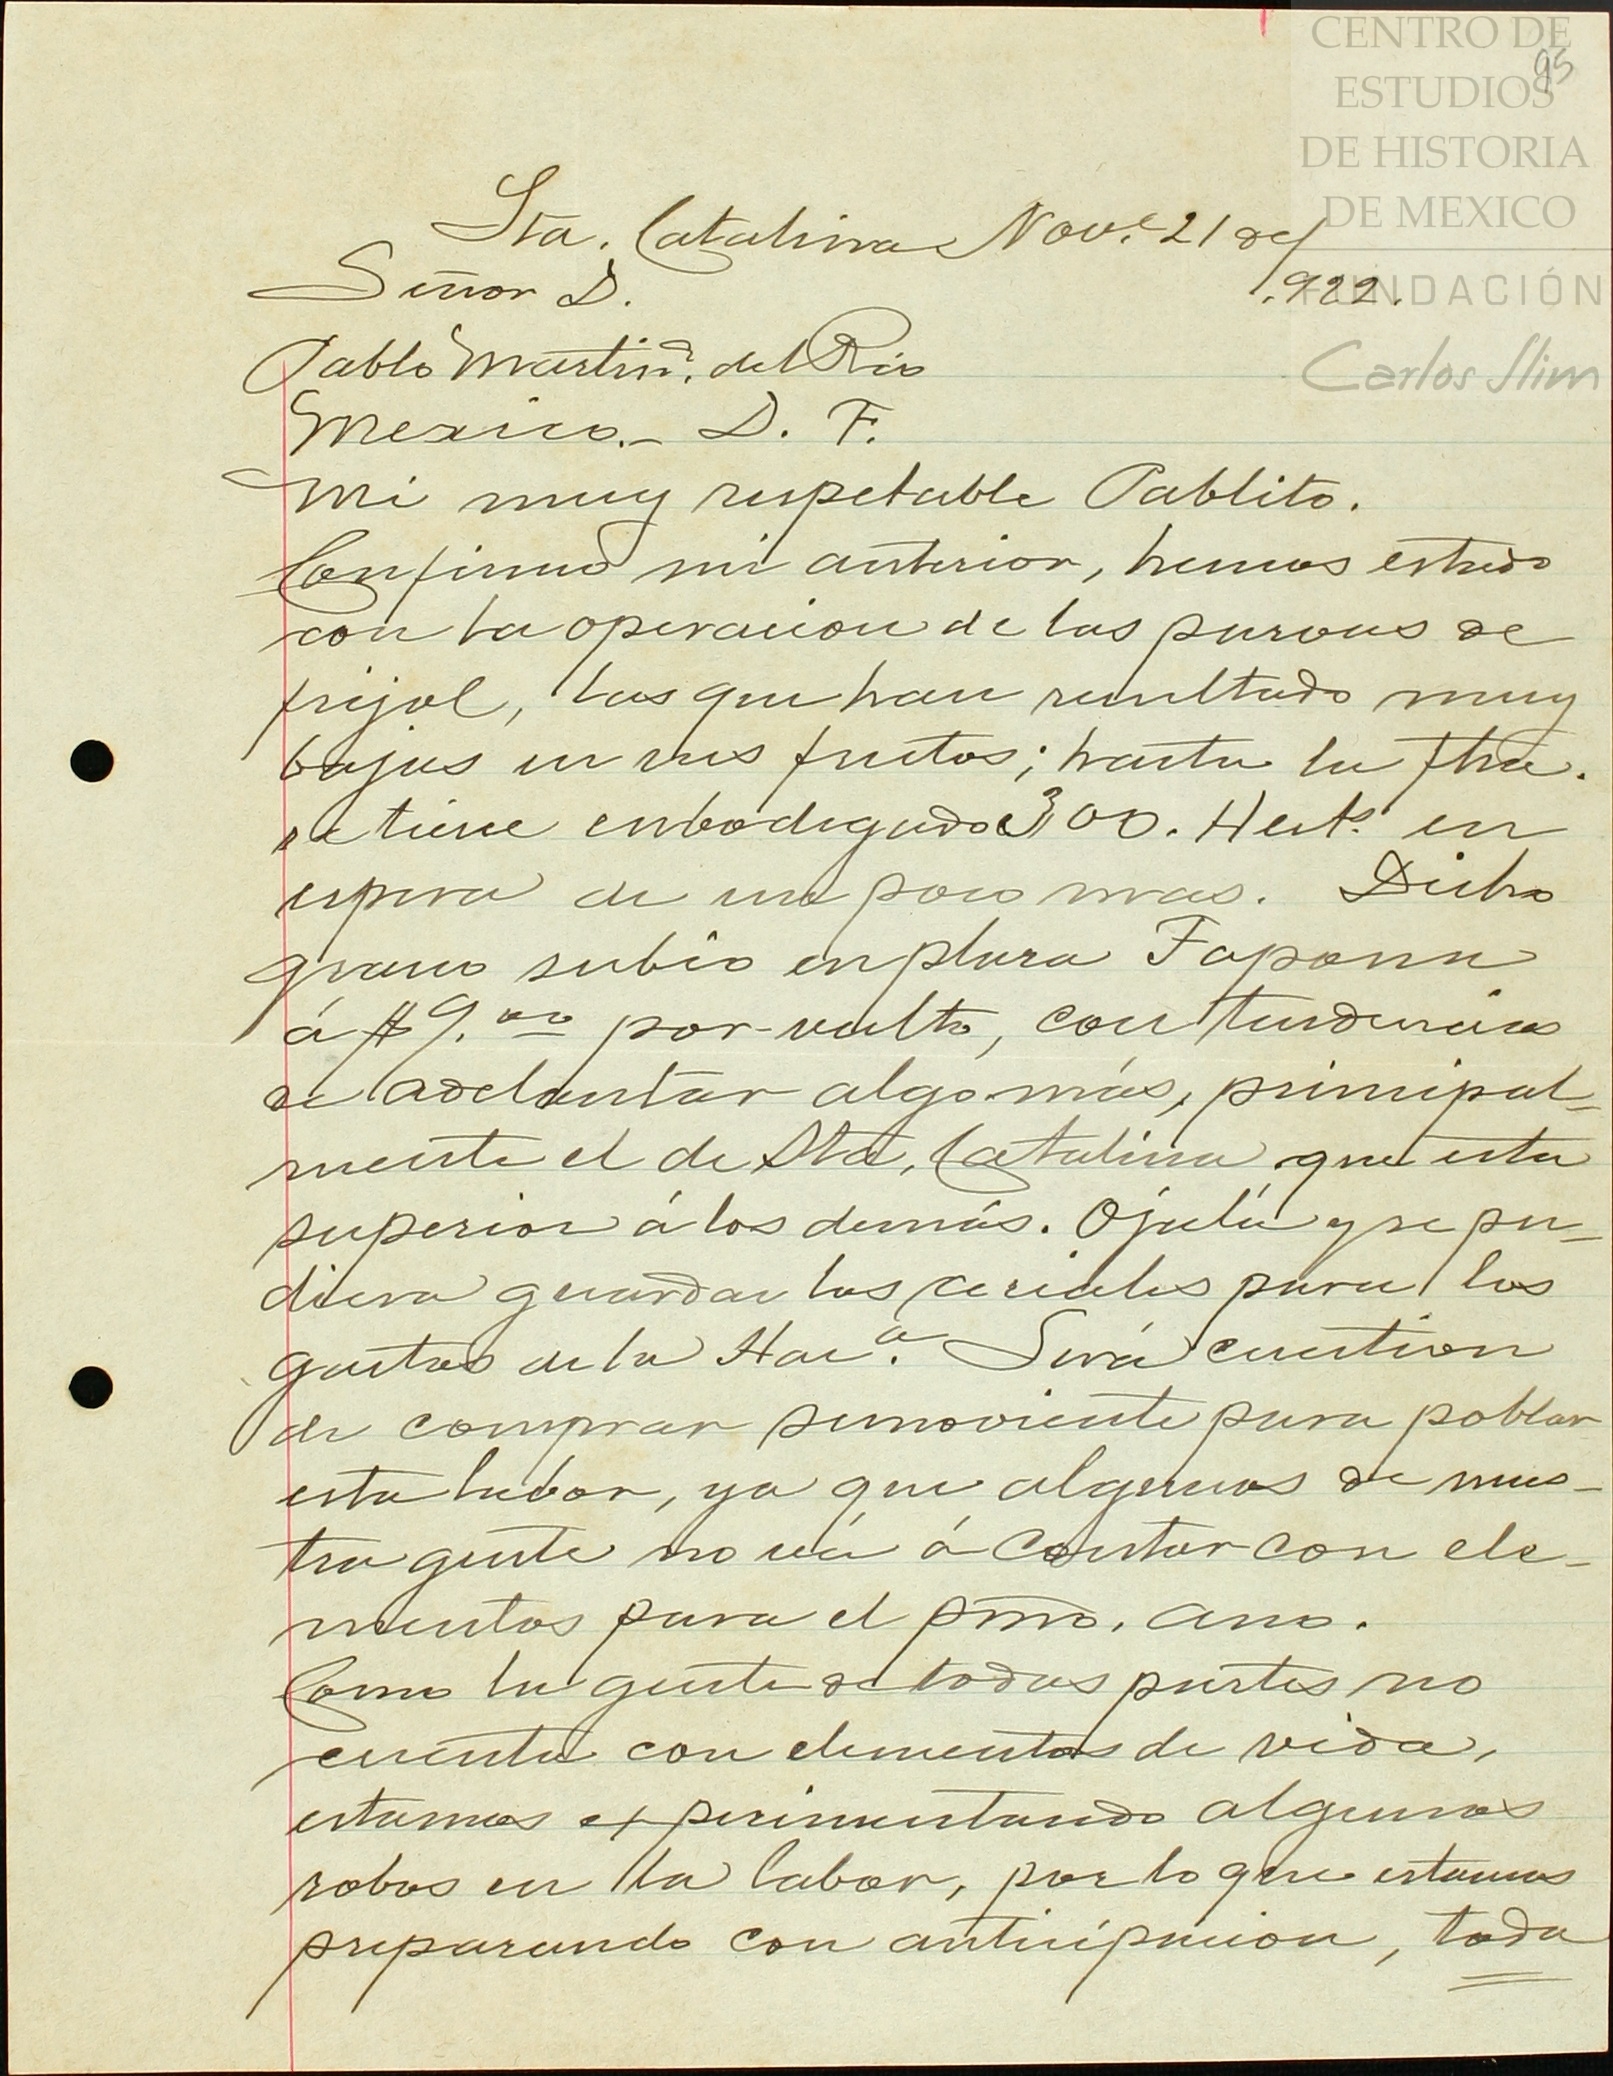 CENTRO DE
ESTUDIOS
DE HISTORIA
DE MEXICO
FUNDACIÓN
Carlos Slim
95
Sta. Catalina Nove. 21 de
.922.
Señor D.
Pablo Martinz. del Rio
Mexico.- D. F.
Mi muy respetable Pablito.
Confirmo mi anterior, hemos estado
con la operacion de las parvas de
frijol, las que han resultado muy
bajas en sus frutos; hasta la fha.
se tiene enbodegado 300. Hects. en
espera de un poco mas. Dicho
grano subio en plaza
á $9.00 por vulto, con tendencias
de adelantar algo más, principal-
mente el de Sta. Catalina que esta
superior á los demás. Ojalá y se pu-
diera guardar los ceriales para los
gastos de la Haca. Será cuestion
de comprar semoviente para poblar
esta labor, ya que algunos de nues-
tra gente no vá á contar con ele-
mentos para el pmo. ano.
Como la gente de todas partes no
cuenta con elementos de vida,
estamos experimentando algunos
robos en la labor, por lo que estamos
preparando con anticipacion, toda